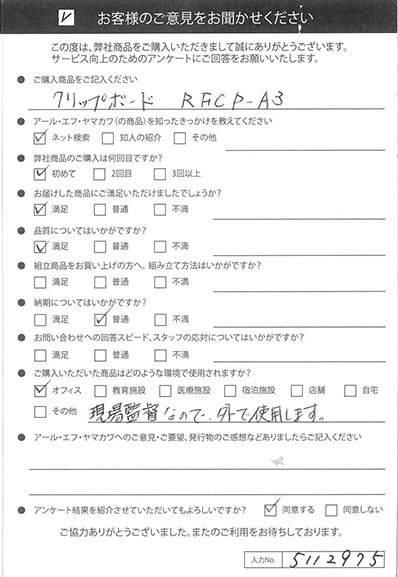 お客様のご意見をお聞かせください
この度は、弊社商品をご購入いただきまして誠にありがとうございます。
サービス向上のためのアンケートにご回答をお願いいたします。
● ご購入商品をご記入ください
クリップボード RFCP-A3
● アール・エフ・ヤマカワ(の商品)を知ったきっかけを教えてください
☑ ネット検索 □ 知人の紹介 □ その他
● 弊社商品のご購入は何回目ですか?
☑ 初めて □ 2回目 □ 3回以上
● お届けした商品にご満足いただけましたでしょうか?
☑ 満足 □ 普通 □ 不満
● 品質についてはいかがですか?
☑ 満足 □ 普通 □ 不満
● 組立商品をお買い上げの方へ。組み立て方法はいかがですか?
□ 満足 □ 普通 □ 不満
● 納期についてはいかがですか?
□ 満足 ☑ 普通 □ 不満
● お問い合わせへの回答スピード、スタッフの応対についてはいかがですか?
□ 満足 □ 普通 □ 不満
● ご購入いただいた商品はどのような環境で使用されますか?
☑ オフィス □ 教育施設 □ 医療施設 □ 宿泊施設 □ 店舗 □ 自宅
□ その他 現場監督なので、外で使用します。
● アール・エフ・ヤマカワへのご意見・ご要望、発行物のご感想などありましたらご記入ください
● アンケート結果を紹介させていただいてもよろしいですか? ☑ 同意する □ 同意しない
ご協力ありがとうございました。またのご利用をお待ちしております。
入力No. 5112975